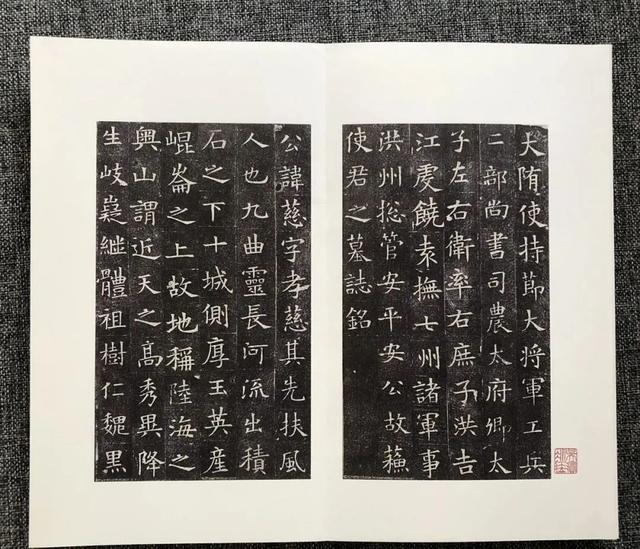 大隋使持節大將軍工兵
二部尚書司農太府卿太
子左右衛率右庶子洪吉
江虔饒袁撫七州諸軍事
洪州總管安平安公故蘇
使君之墓誌銘
公諱慈字孝慈其先扶風
人也九曲靈長河流出積
石之下十城側厚玉英產
崐崙之上故地稱陸海之
興山謂近天之高秀異降
生岐嶷繼體祖樹仁魏黑